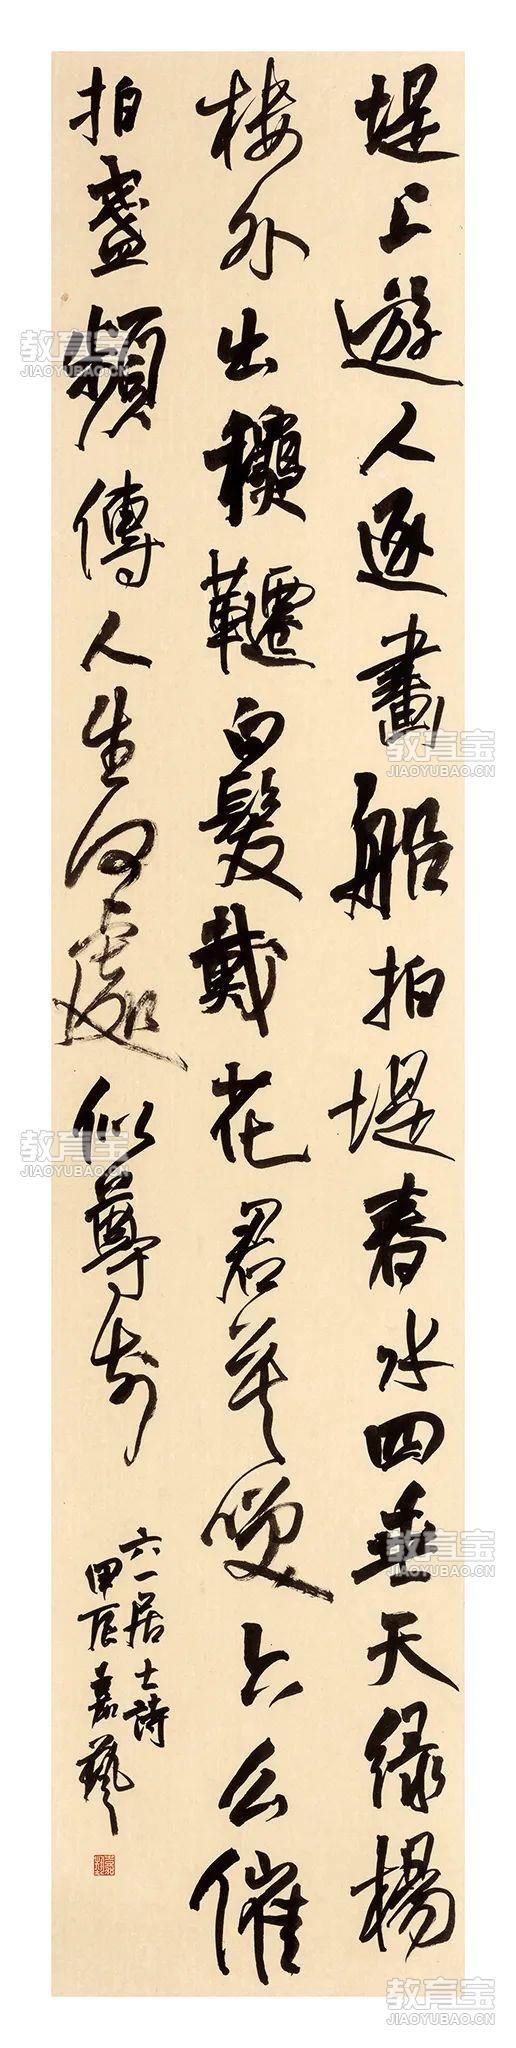 堤上遊人逐畫船拍堤春水四垂天綠楊
樓外出龝韆白髮戴花君莫咲六么催
拍盞頻傳人生何處似尊前
六一居士詩
甲辰嘉藝
教育宝
JIAOYUBAO.CN
教育宝
JIAOYUBAO.CN
教育宝
JIAOYUBAO.CN
教育宝
JIAOYUBAO.CN
教育宝
JIAOYUBAO.CN
教育宝
JIAOYUBAO.CN